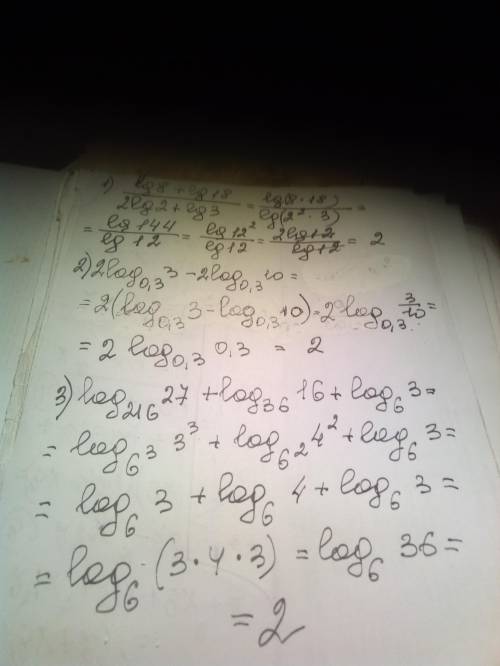 1) (lg8 + lg18)/(2lg2 + lg3) = lg(8·18)/lg(2²·3) =
= lg144/lg12 = lg12²/lg12 = 2lg12/lg12 = 2
2) 2log₀,₃ 3 - 2log₀,₃ 10 =
= 2(log₀,₃ 3 - log₀,₃ 10) = 2log₀,₃ 3/10 =
= 2 log₀,₃ 0,3 = 2
3) log₂₁₆ 27 + log₃₆ 16 + log₆ 3 =
= log₆³ 3³ + log₆² 4² + log₆ 3 =
= log₆ 3 + log₆ 4 + log₆ 3 =
= log₆ (3·4·3) = log₆ 36 =
= 2